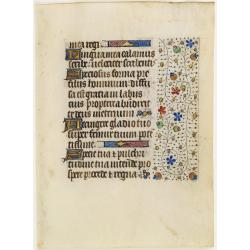 mea regi
Lingua mea calamus
scribe velociter scribenti
Speciosus forma pre
filiis hominum diffu
sa est gratia in labiis
tuis propterea bndixit
te deus in eternum
Accingere gladio tuo
super femur tuum pote
tissime
Specie tua et pulchri
tudine tua intende pro
spere procede et regna